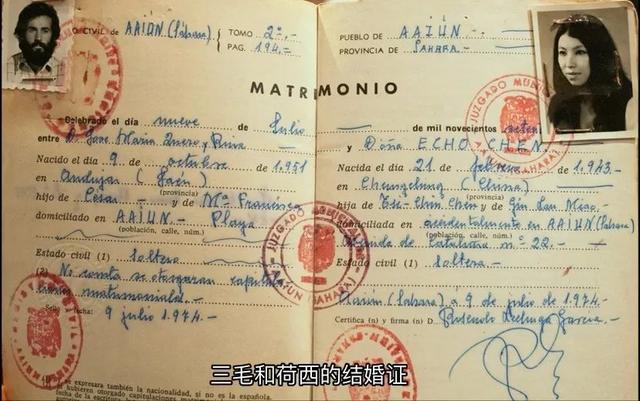 CIVIL de AAIÚN (Sáhara) TOMO 2º.-
PAG. 194.-
PUEBLO DE AAIÚN.-
PROVINCIA DE SAHARA.-
MATRIMONIO
Celebrado el día nueve de Julio
entre D. Jose Maria Quero y Ruiz
Nacido el día 9 de octubre de 1.951
en Andujar (Jaén)
(provincia)
hijo de César.- y de Mª Francisca
domiciliado en AAIUN.- Playa
(población, calle, núm.)
Estado civil (1) soltero
(2) No consta se otorgaran
fecha: 9 julio 1.974.-
Se expresara también la nacionalidad, si no es la española.
de mil novecientos
y Doña ECHO CHEN
Nacida el día 21 de febrero de 1.943.-
en Chungching (China)
(provincia)
hija de Tse-Chin Chen y de Gin Lan Miao.-
domiciliada en accidentalmente en AAIUN (Sahara)
(población, calle, núm.)
de Cataluña nº 22.-
Estado civil (1) soltera.-
Aaiún (Sahara) a 9 de julio de 1.974.-
Certifica (n) y firma (n) D.
JUZGADO
AAIUN (SAHARA)
三毛和荷西的结婚证